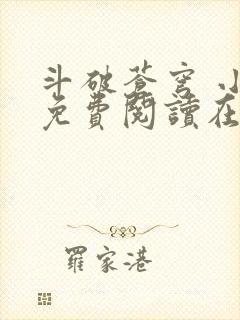 斗破蒼穹 小
免費閱讀在
羅家港